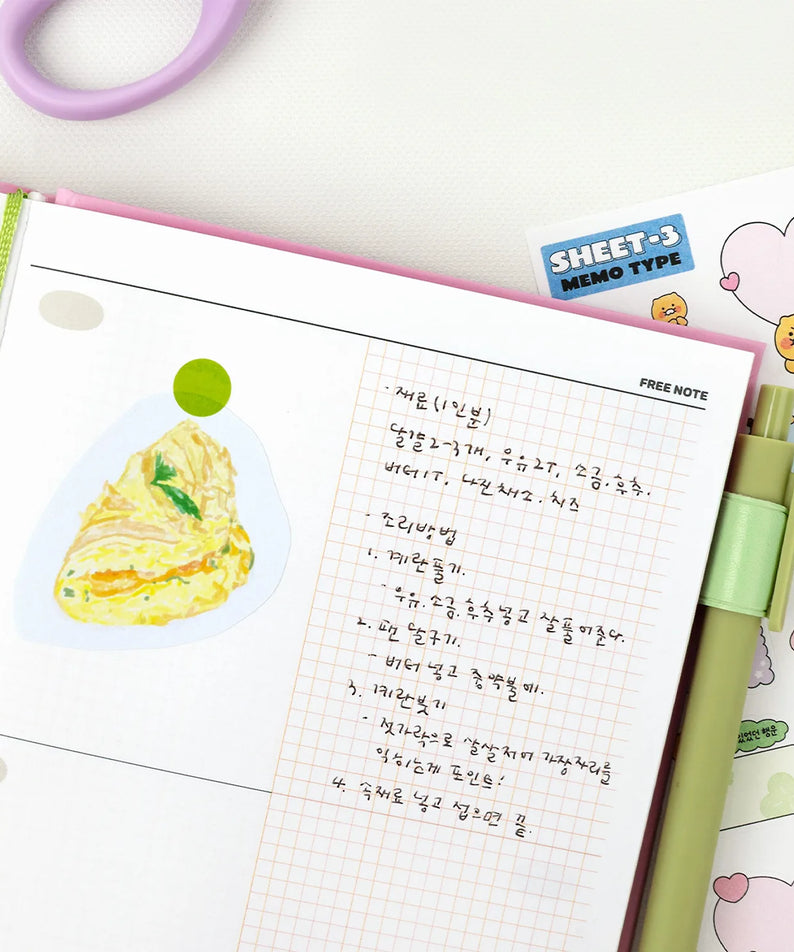 SHEET-3
MEMO TYPE
FREE NOTE
· 재료(1인분)
달걀2-3개, 우유2T, 소금.후추.
버터1T. 다진채소.치즈
· 조리방법
1. 계란풀기.
- 우유.소금.후추넣고 잘풀어준다.
2. 팬 달구기.
- 버터 넣고 중약불에.
3. 계란붓기
- 젓가락으로 살살저어 가장자리를
익히는게 포인트!
4. 속재료 넣고 접으면 끝.
있었던 행운